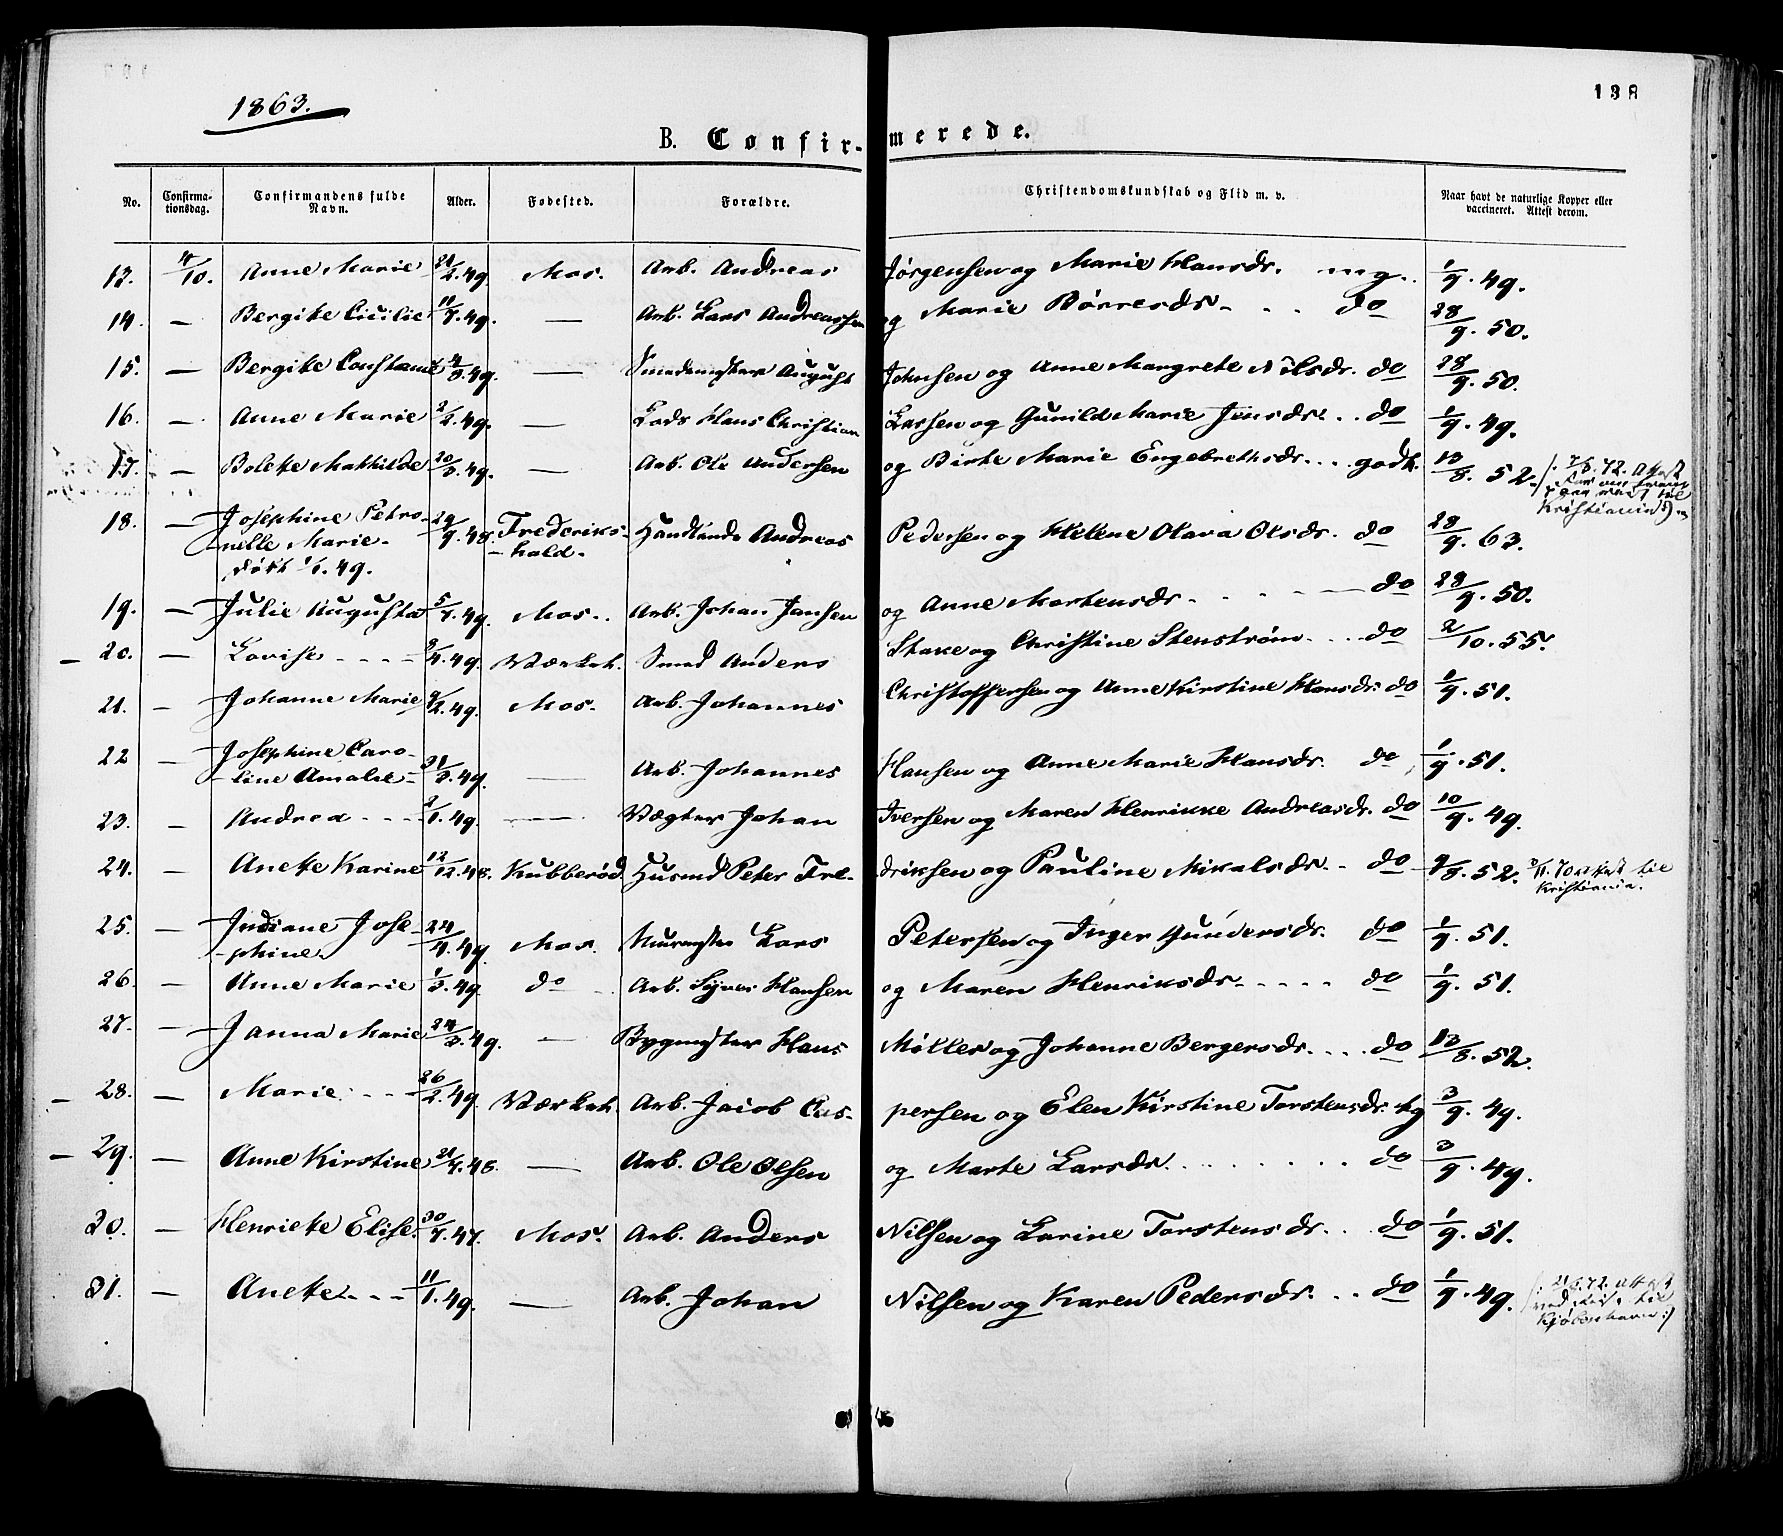 1863.
138
B. Confirmerede.
No. Confirmationsdag. Confirmandens fulde Navn. Alder. Fødested. Forældre. Christendomskundskab og Flid m. v. Naar havt de naturlige Kopper eller vaccineret. Attest derom.
13. 4/10. Anne Marie 24/2.49. Mos. Arb. Andreas Jørgensen og Marie Hansdr. mg. 1/9.49.
14. — Bergite Cicilie 11/7.49. — Arb. Lars Andreassen og Marie Børresdr - - - do 28/9.50.
15. — Bergite Constance 4/3.49. — Smedmester August Johnsen og Anne Margrete Nilsdr. do 28/9.50.
16. — Anne Marie 2/2.49. — Lods Hans Christian Larsen og Gunild Marie Jensdr. .. do 1/9.49.
17. — Bolete Mathilde 20/3.49. — Arb. Ole Andersen og Birte Marie Engebrethsdr. ... godt. 13/8.52. /: 7/5.72. Attest
Kristiania :/
18. — Josephine Petro-
nelle Marie - 29/9.48. Frederiks-
hald. Handlende Andreas Pedersen og Helene Olava Olsdr. do 28/9.63.
døbt 1/1.49.
19. — Julie Augusta 5/7.49. Mos.. Arb. Johan Jansen og Anne Mortensdr - - - - do 28/9.50.
20. — Lovise - - - 9/4.49. Værket. Smed Anders Stake og Christine Stenstrøm - - - do 2/10.55.
21. — Johanne Marie 9/2.49. Mos. Arb. Johannes Christoffersen og Anne Kirstine Hansdr. do 1/9.51.
22 — Josephine Caro-
line Amalie - 31/3.49. — Arb. Johannes Hansen og Anne Marie Hansdr. do 1/9.51.
23. — Andrea - - - 2/1.49. — Vægter Johan Iversen og Maren Henrikke Andreasdr. do 10/9.49.
24. — Anete Karine 12/12.48. Kubberød. Husmd Peter Fre-driksen og Pauline Mikalsdr. - do 9/8.52. 3/11.70 attest til
Kristiania.
25. — Indiane Jose-
phine 24/4.49. Mos. Murmester Lars Petersen og Inger Gundersdr. do 1/9.51.
26. — Anne Marie 1/3.49. do Arb. Syver Hansen og Maren Henriksdr. - - - - do 1/9.51.
27. — Janna Marie 24/3.49. — Bygmester Hans Møller og Johanne Bergersdr. ... do 13/8.52.
28. — Marie - - - 26/2.49. Værket. Arb. Jacob Cas-persen og Elen Kirstine Torstensdr. tg 3/9.49.
29. — Anne Kirstine 21/4.48. — Arb. Ole Olsen og Marte Larsdr. - - - - - do 3/9.49.
30. — Henriette Elise. 30/7.47. Mos. Arb. Anders Nilsen og Larine Torstensdr. .. do 1/9.51.
31. — Anete - - - 11/1.49. — Arb. Johan Nilsen og Karen Pedersdr. .. do 1/9.49. /: 21/5.72. attest
til
Kjøbenhavn :/